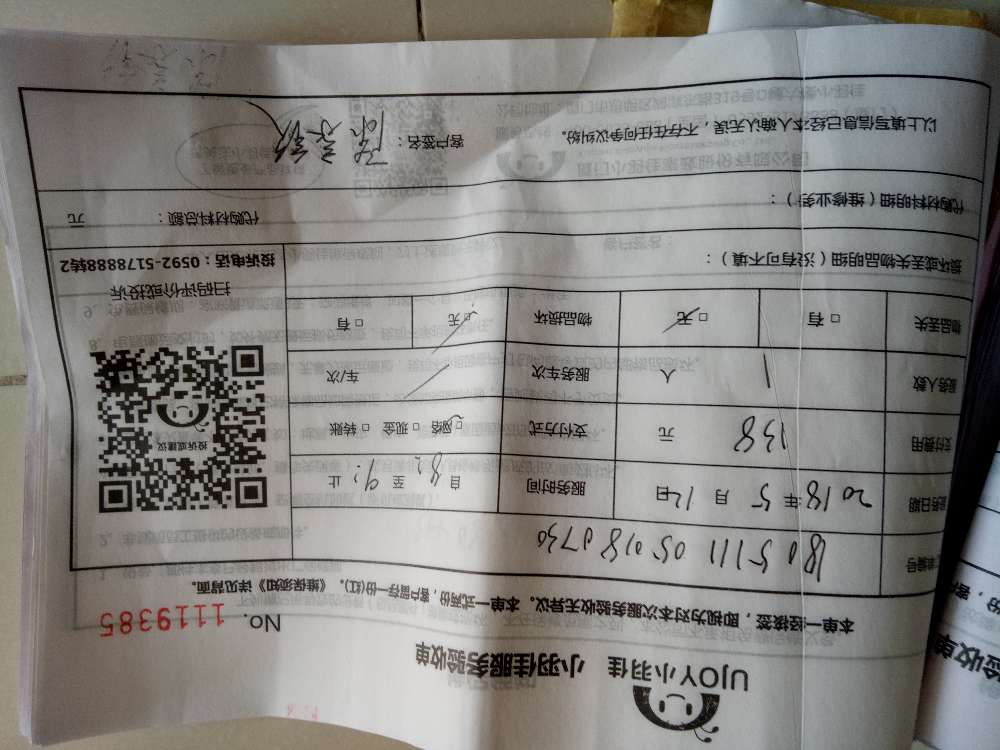 UJOY小羽佳 小羽佳服务验收单
No. 1119385
本单一经接签，即视为对本次本服务验收无异议。本单一式两份，客户留存一份(红)。《维保须知》详见背面。
单编号 1805111050180730
服务日期 2018年5月12日 服务时间 自8:至9:止
支付费用 138 元 支付方式 □网络 □现金 □转账
服务人数 1 人 服务车次 车/次
物品丢失 □有 □无 物品损坏 □无 □有
投诉或建议
扫码评价或投诉
投诉电话：0592-5178888转2
损坏或丢失物品明细（没有可不填）：
代购材料明细（维修业务）： 代购材料总额： 元
以上填写信息已经本人确认无误，不存在任何争议纠纷。 客户签名：
验收单